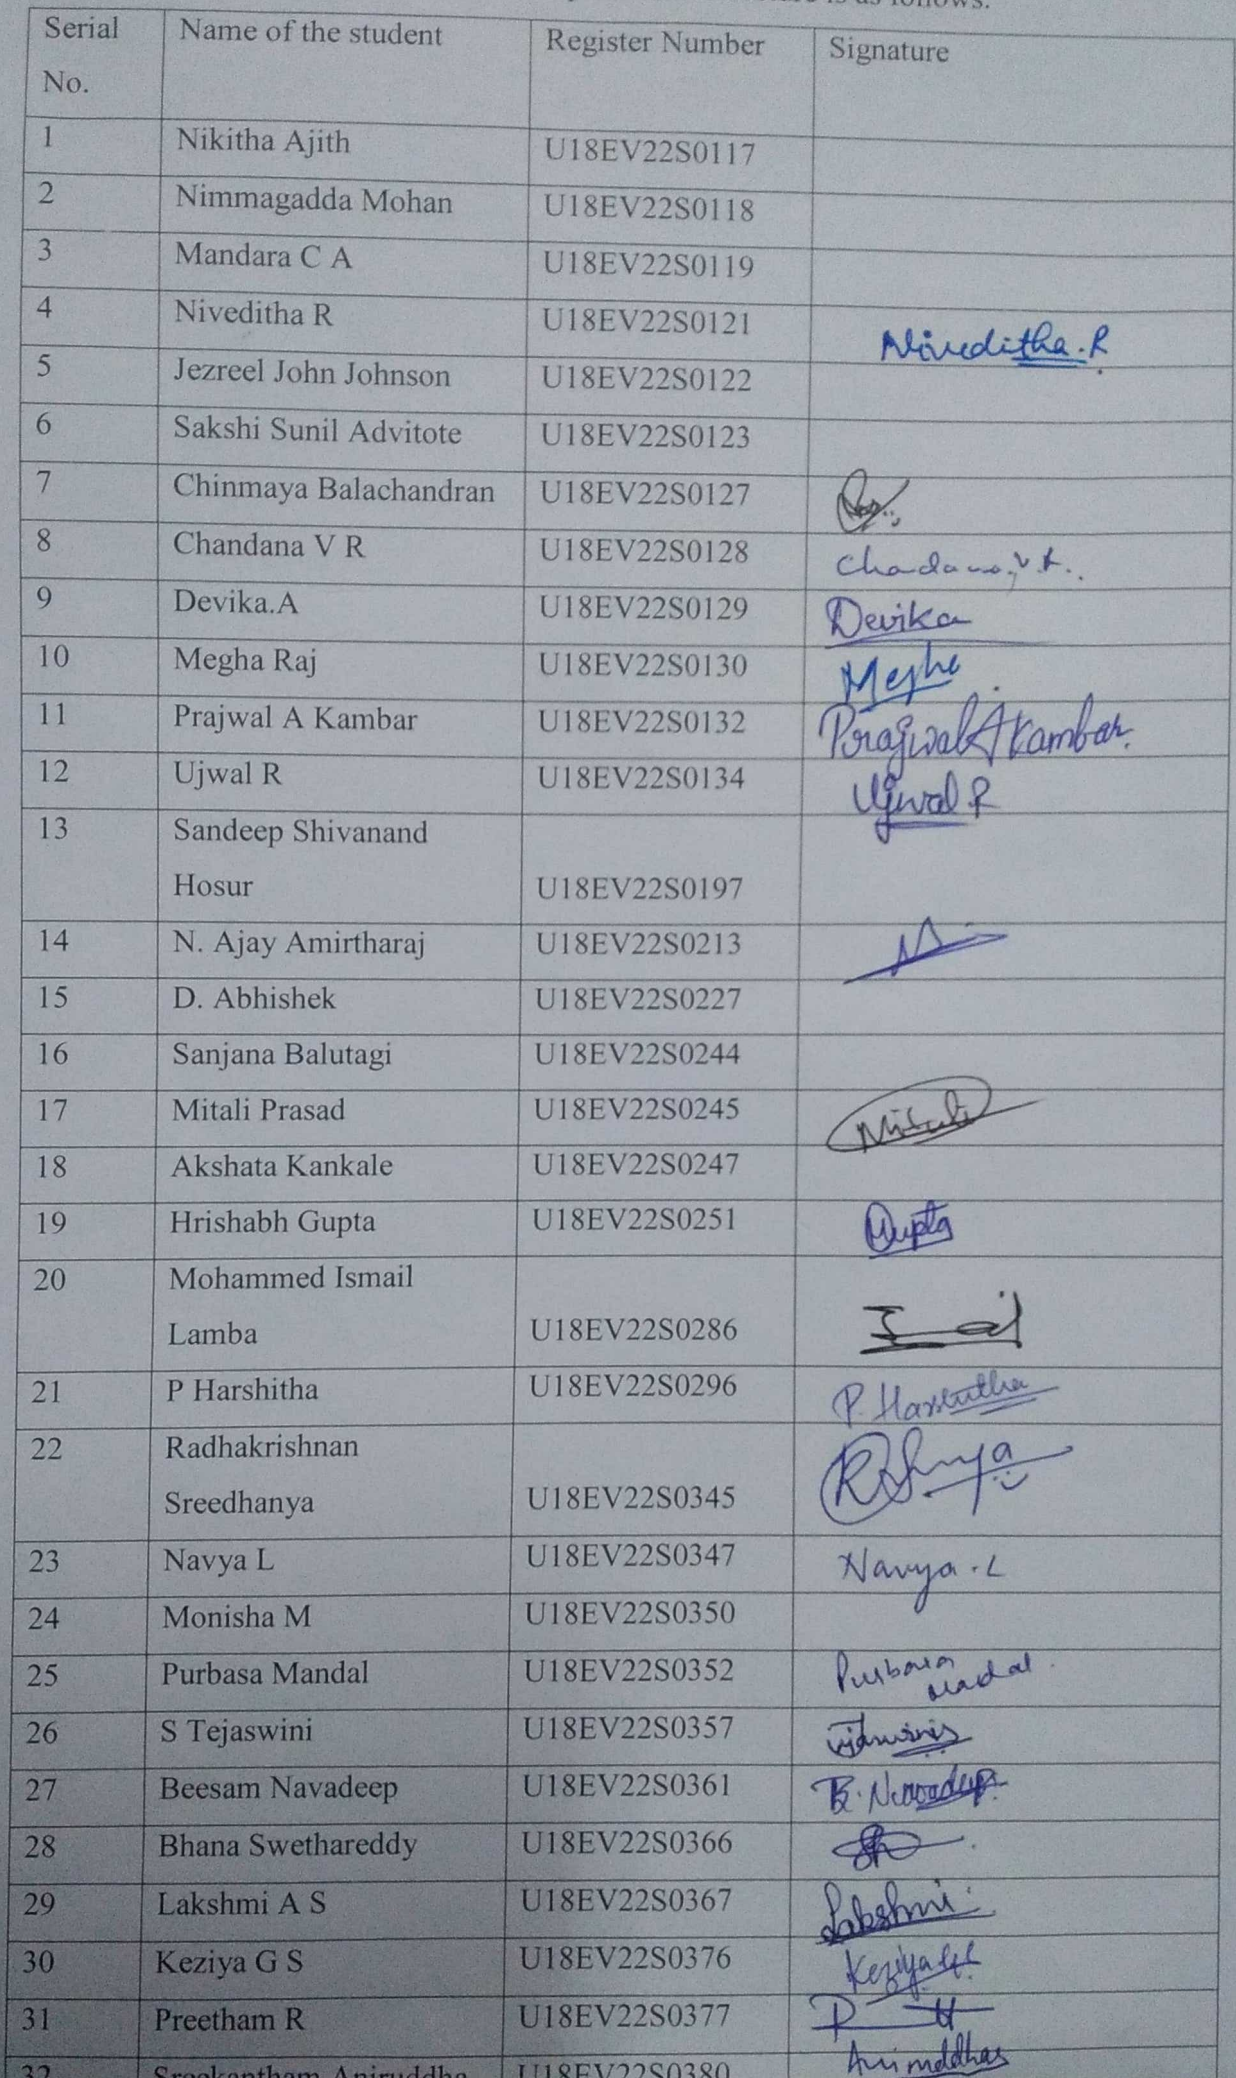 is as follows.
Serial No. Name of the student Register Number Signature
1 Nikitha Ajith U18EV22S0117
2 Nimmagadda Mohan U18EV22S0118
3 Mandara C A U18EV22S0119
4 Niveditha R U18EV22S0121 Niveditha.R
5 Jezreel John Johnson U18EV22S0122
6 Sakshi Sunil Advitote U18EV22S0123
7 Chinmaya Balachandran U18EV22S0127
8 Chandana V R U18EV22S0128 Chadana.V.R.
9 Devika.A U18EV22S0129 Devika
10 Megha Raj U18EV22S0130 Megha
11 Prajwal A Kambar U18EV22S0132 Prajwal A Kambar.
12 Ujwal R U18EV22S0134 Ujwal R
13 Sandeep Shivanand
Hosur U18EV22S0197
14 N. Ajay Amirtharaj U18EV22S0213
15 D. Abhishek U18EV22S0227
16 Sanjana Balutagi U18EV22S0244
17 Mitali Prasad U18EV22S0245 Mitali
18 Akshata Kankale U18EV22S0247
19 Hrishabh Gupta U18EV22S0251 Gupta
20 Mohammed Ismail
Lamba U18EV22S0286
21 P Harshitha U18EV22S0296 P. Harshitha
22 Radhakrishnan
Sreedhanya U18EV22S0345
23 Navya L U18EV22S0347 Navya.L
24 Monisha M U18EV22S0350
25 Purbasa Mandal U18EV22S0352 Purbasa
Madal.
26 S Tejaswini U18EV22S0357
27 Beesam Navadeep U18EV22S0361 B.Navadeep
28 Bhana Swethareddy U18EV22S0366
29 Lakshmi A S U18EV22S0367 Lakshmi
30 Keziya G S U18EV22S0376 Keziya GS
31 Preetham R U18EV22S0377
32 Sreekantham Aniruddha U18EV22S0380 Aniruddha